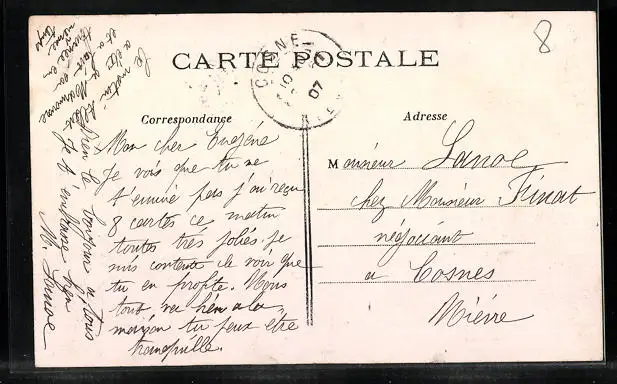 8
CARTE POSTALE
COSNE
07
Correspondance
Adresse
Mon cher Eugène
Je vois que tu ne
t'ennuie pas j'ai reçu
8 cartes ce matin
toutes très jolies. je
suis contente de voir que
tu en profite. Nous
tout va bien a la
maison tu peux etre
tranquille.
Bien le bonjour a tous
Je t'embrasse bien
Lanoe
Monsieur Lanoe
chez Monsieur Finat
négociant
a Cosnes
Nièvre